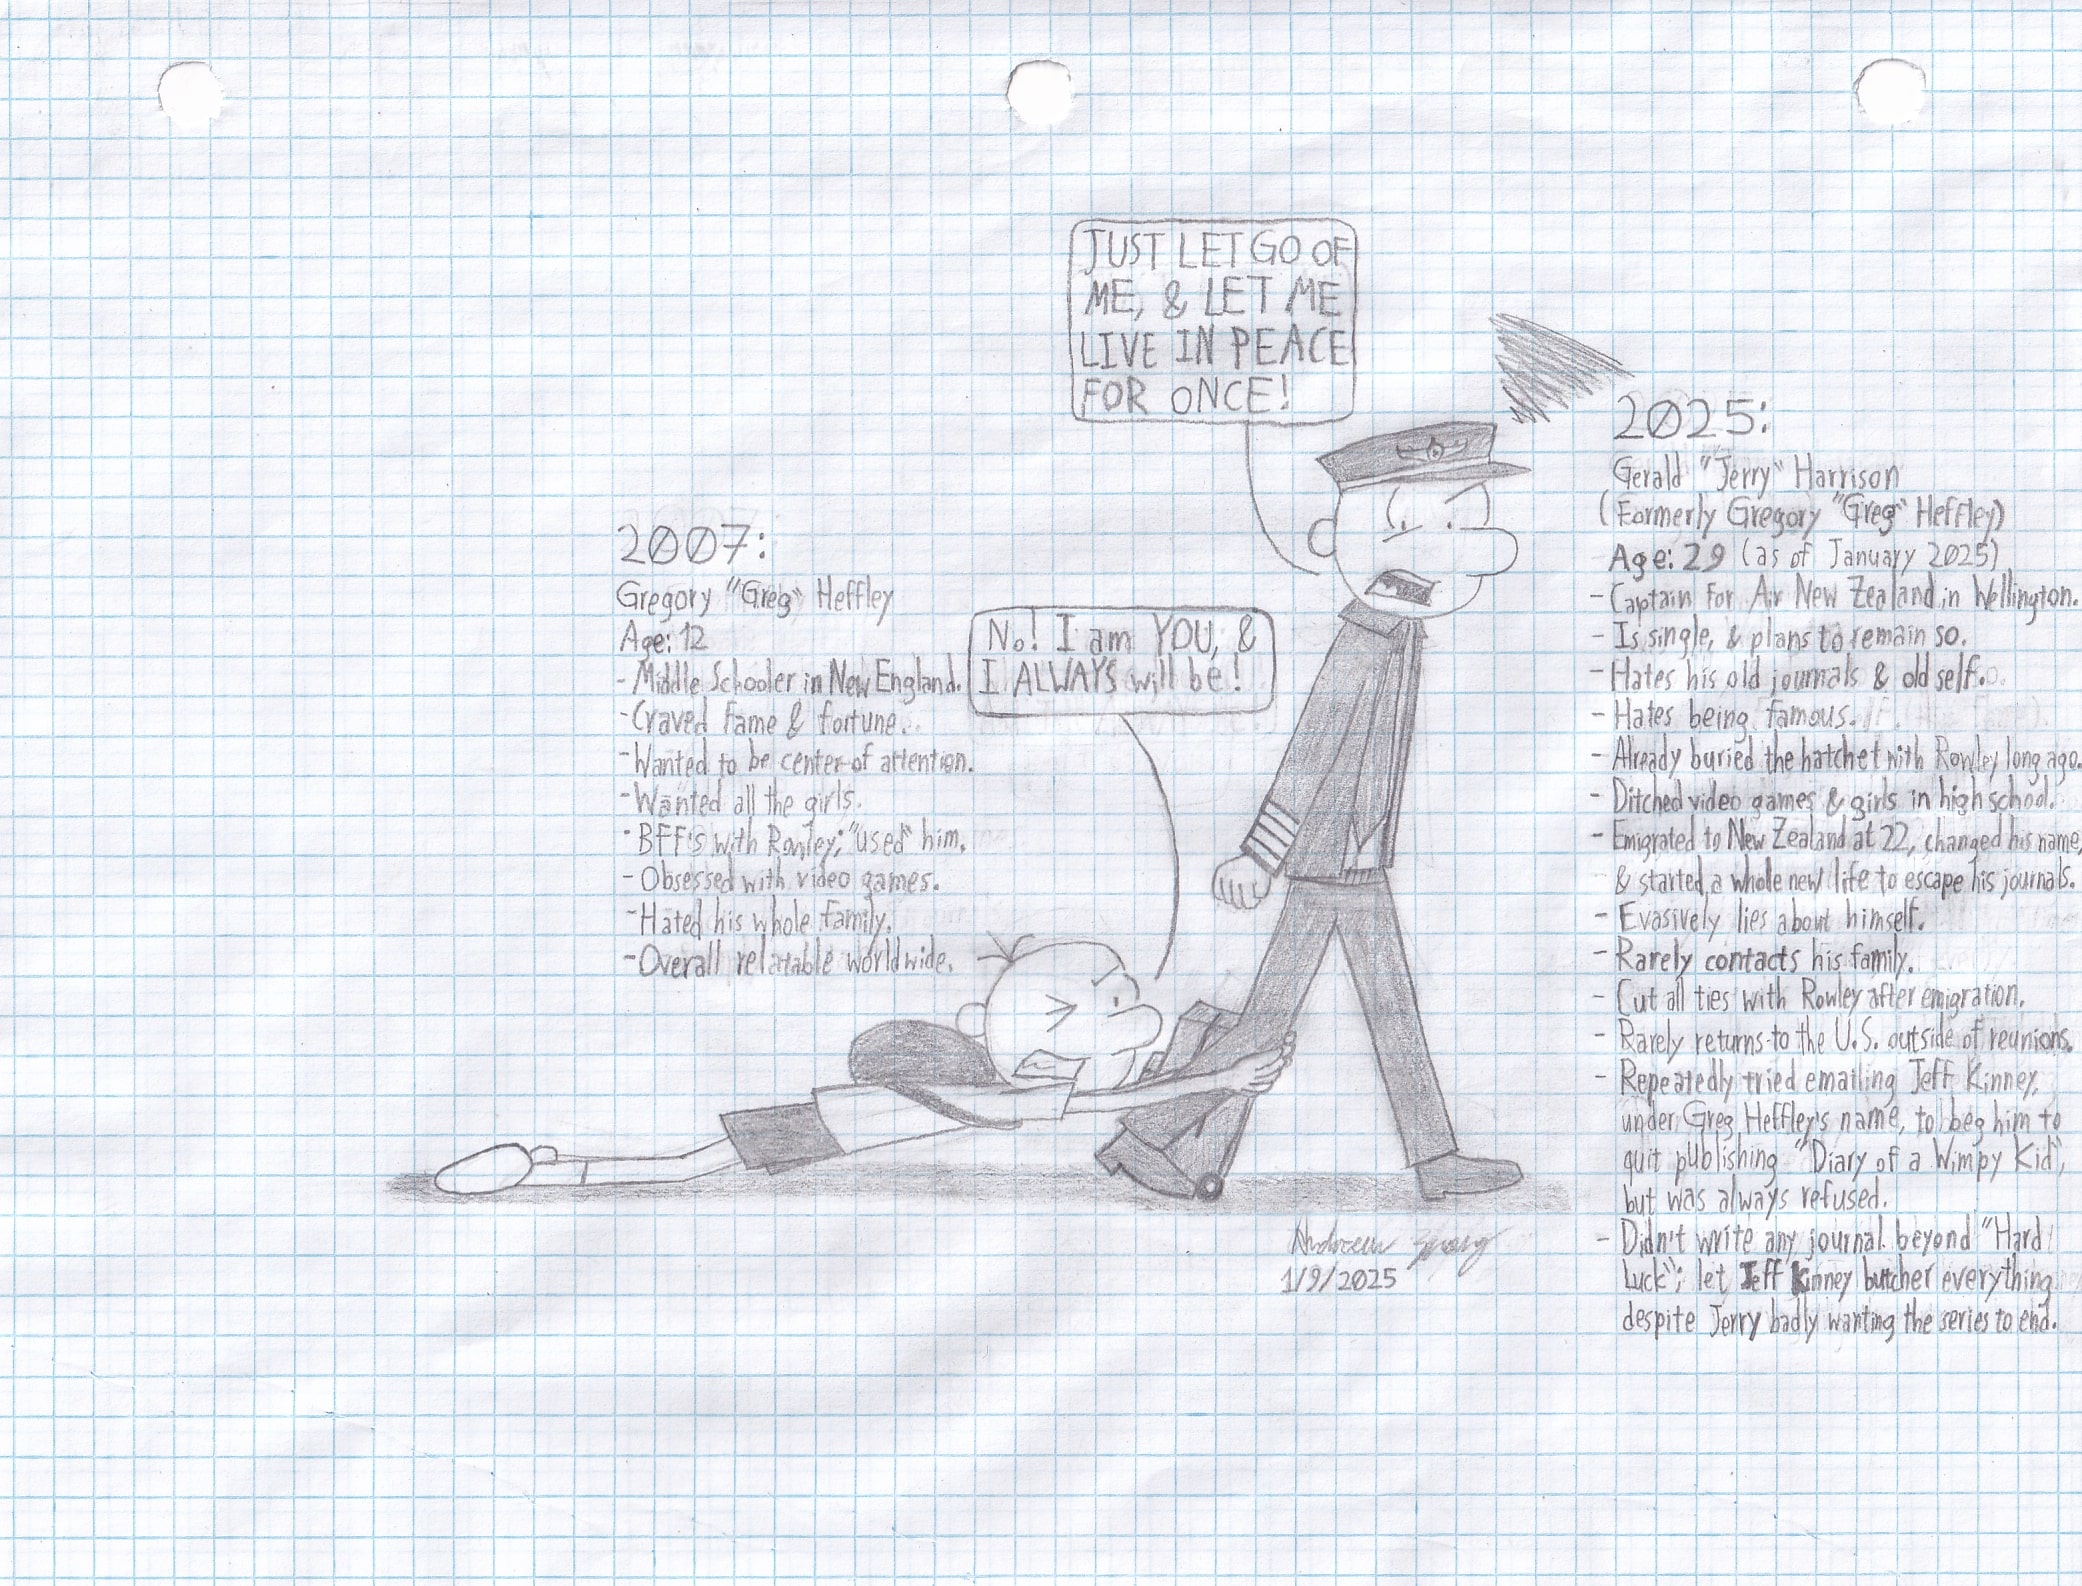 JUST LET GO OF
ME, & LET ME
LIVE IN PEACE
FOR ONCE!
No! I am YOU, &
I ALWAYS will be!
2007:
Gregory "Greg" Heffley
Age: 12
- Middle Schooler in New England.
- Craved fame & fortune.
- Wanted to be center of attention.
- Wanted all the girls.
- BFF's with Rowley; "used" him.
- Obsessed with video games.
- Hated his whole family.
- Overall relatable worldwide.
2025:
Gerald "Jerry" Harrison
(Formerly Gregory "Greg" Heffley)
Age: 29 (as of January 2025)
- Captain for Air New Zealand in Wellington.
- Is single, & plans to remain so.
- Hates his old journals & old self.
- Hates being famous.
- Already buried the hatchet with Rowley long ago.
- Ditched video games & girls in high school.
- Emigrated to New Zealand at 22, changed his name,
& started a whole new life to escape his journals.
- Evasively lies about himself.
- Rarely contacts his family.
- Cut all ties with Rowley after emigration.
- Rarely returns to the U.S. outside of reunions.
- Repeatedly tried emailing Jeff Kinney,
under Greg Heffley's name, to beg him to
quit publishing "Diary of a Wimpy Kid",
but was always refused.
- Didn't write any journal beyond "Hard
Luck"; let Jeff Kinney butcher everything
despite Jerry badly wanting the series to end.
1/9/2025